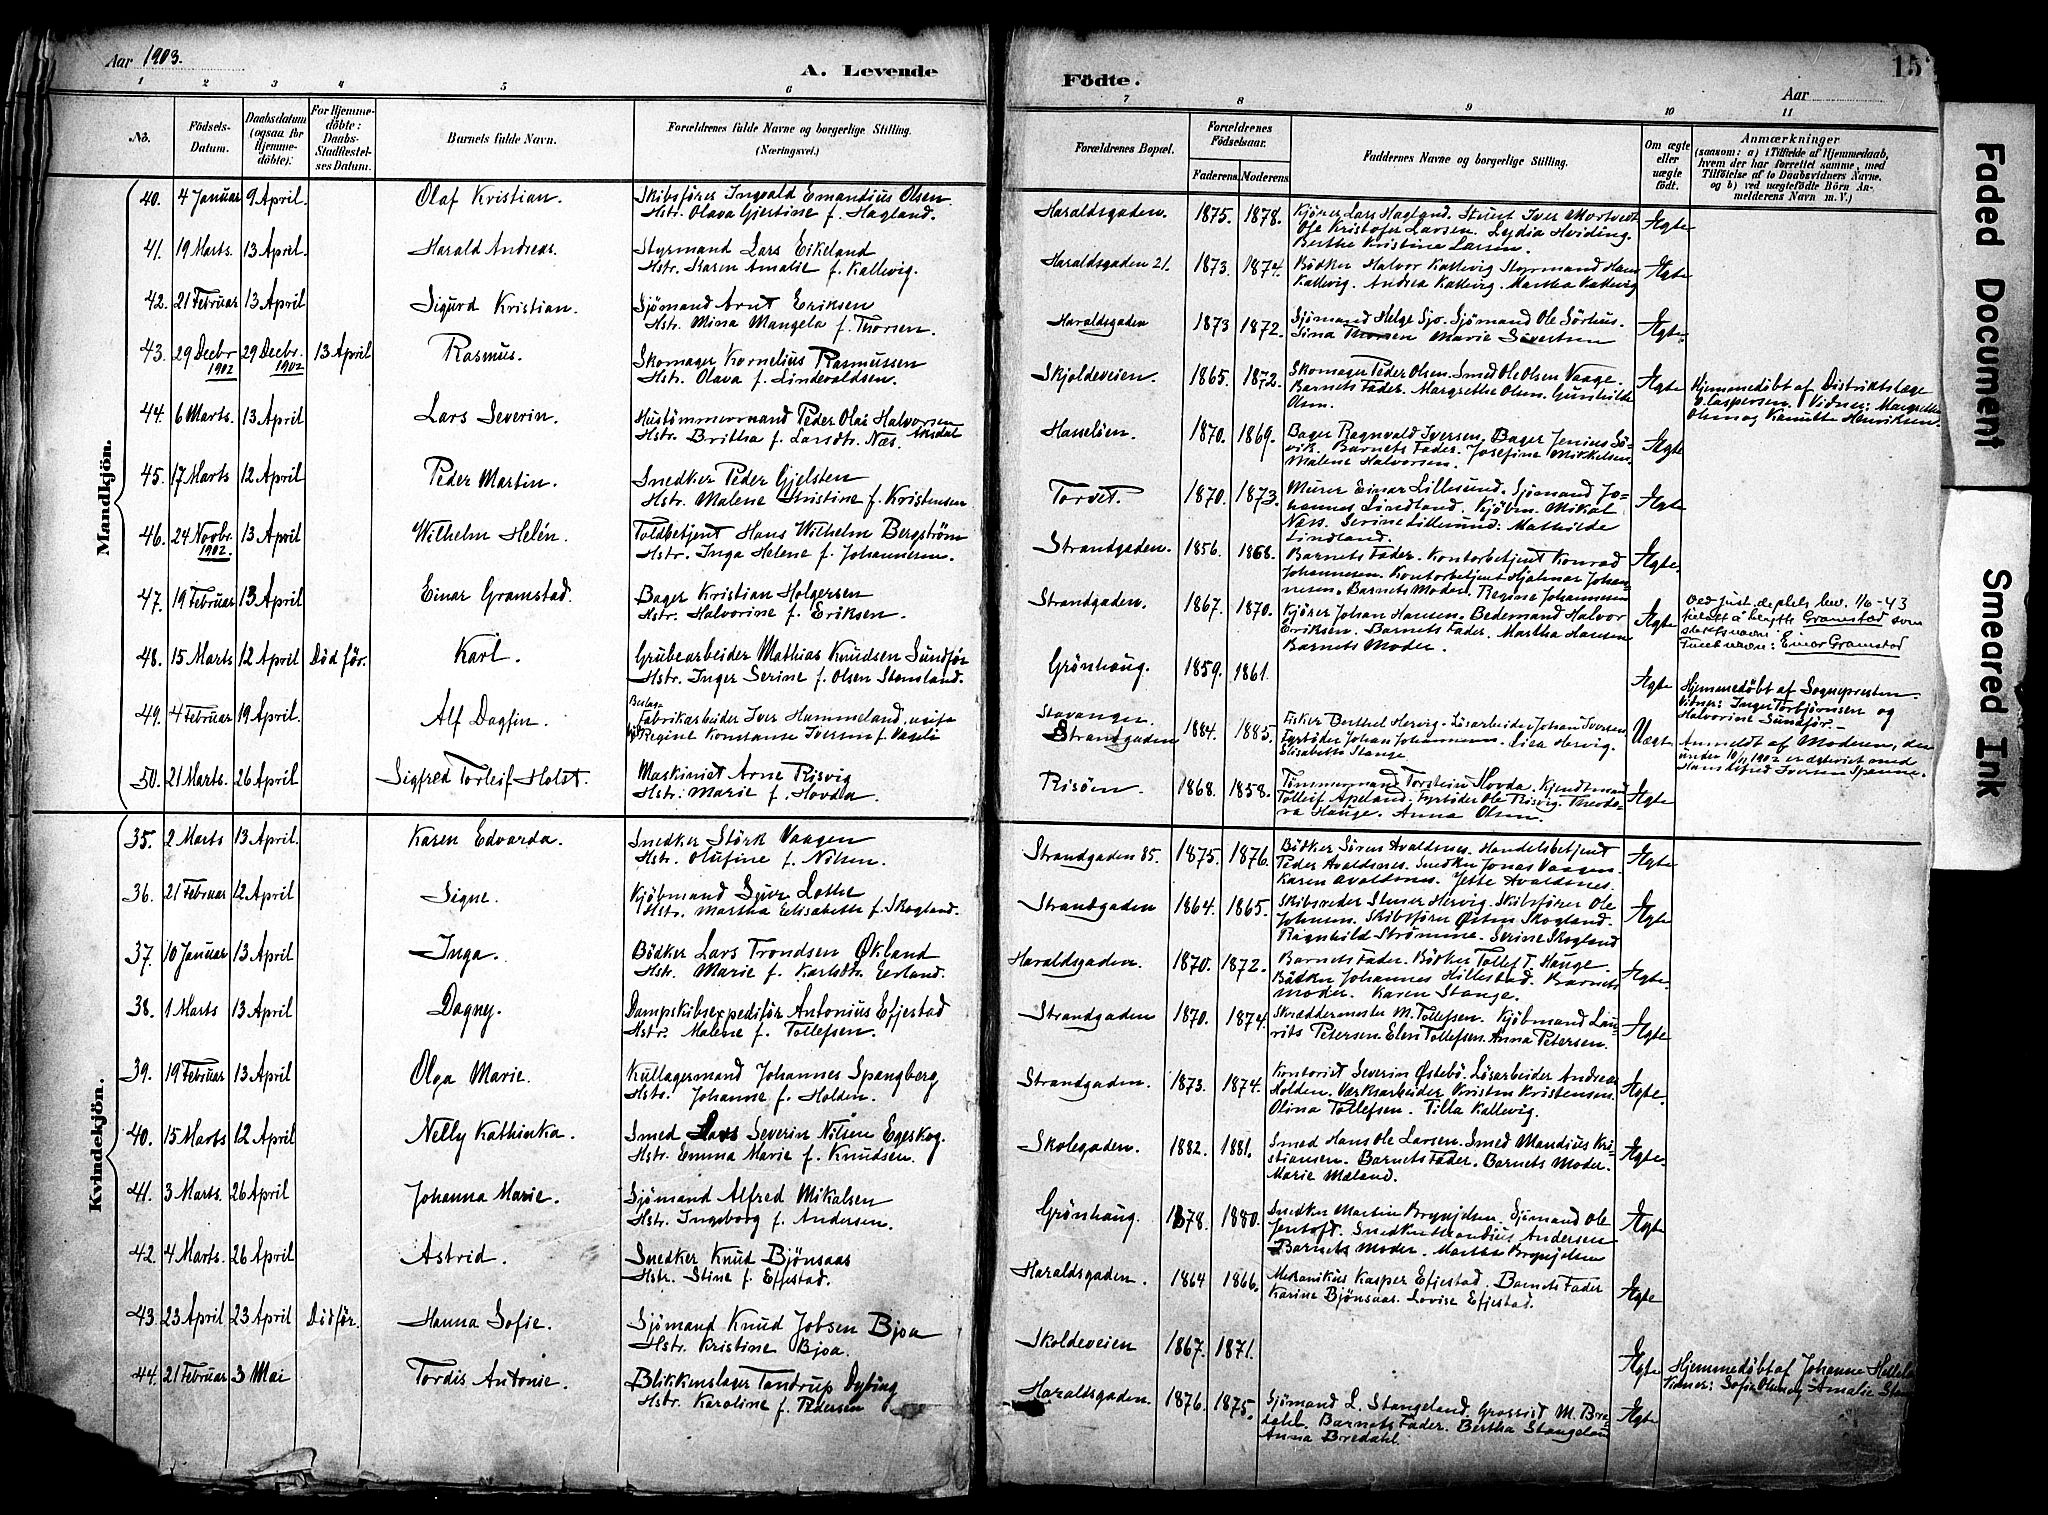 Aar 1903.
A. Levende
1 2 3 4 5 6
No. Födsels-Datum. Daabsdatum (ogsaa for Hjemmedöbte): For Hjemmedöbte: Daabs-Stadfæstelses Datum. Barnets fulde Navn. Forældrenes fulde Navne og borgerlige Stilling. (Næringsvei.)
Mandkjön.
40. 4 Januar 9 April. Olaf Kristian. Skibsfører Ingvald Emandius Olsen
Hstr. Olava Gjertine f. Hagland.
41. 19 Marts. 13 April. Harald Andreas. Styrmand Lars Eikeland
Hstr. Karen Amalie f. Kallevig.
42. 21 Februar 13 April Sigurd Kristian. Sjömand Arnt Eriksen
Hstr. Mina Mangela f. Thorsen.
43. 29 Decbr 1902 29 Decbr. 1902 13 April Rasmus. Skomager Kornelius Rasmussen
Hstr. Olava f. Lindevaldsen.
44. 6 Marts. 13 April Lars Severin. Hustömmermand Peder Olai Halvorsen Aksdal
Hstr. Britha f. Larsdtr. Næs.
45. 17 Marts 12 April Peder Martin. Snedker Peder Gjelsten
Hstr. Malene Kristine f. Kristensen
46. 24 Novbr. 1902. 13 April Wilhelm Helén. Toldbetjent Hans Wilhelm Bergström
Hstr. Inga Helene f. Johannesen.
47. 19 Februar 13 April Einar Gramstad. Bager Kristian Holgersen
Hstr. Halvorine f. Eriksen.
48. 15 Marts 12 April Död för. Karl. Grubearbeider Mathias Knudsen Sundför
Hstr. Inger Serine f. Olsen Stensland.
49. 4 Februar 19 April. Alf Dagfin. Fabrikarbeider Iver Hammeland, ugift
Regine Konstanse Iversen f.
50. 21 Marts. 26 April Sigfred Torleif Holst. Maskinist Arne Risvig
Hstr. Marie f. Hovda.
Kvindekjön.
35. 2 Marts 13 April. Karen Edvarda. Snedker Störk Vaagen
Hstr. Olufine f. Nilsen.
36. 21 Februar 12 April Signe. Kjöbmand Sjur Lothe
Hstr. Martha Elisabeth f. Skogland.
37. 10 Januar 13 April Inga. Bödker Lars Trondsen Økland
Hstr. Marie f. Karlsdtr. Eerland.
38. 1 Marts 13 April Dagny. Dampskibsexpeditör Antonius Efjestad
Hstr. Malene f. Tollefsen.
39. 19 Februar 13 April Olga Marie. Kullagermand Johannes Spangberg
Hstr. Johanne f. Holden.
40. 15 Marts 12 April Nelly Kathinka. Smed Lars Severin Nilsen Egeskog.
Hstr. Emma Marie f. Knudsen.
41. 3 Marts. 26 April Johanna Marie. Sjömand Alfred Mikalsen
Hstr. Ingeborg f. Andersen.
42. 4 Marts. 26 April Astrid. Snedker Knud Bjönsaas
Hstr. Stine f. Efjestad.
43. 23 April 23 April Död för. Hanna Sofie. Sjömand Knud Jobsen Bjoa
Hstr. Kristine Bjoa.
44. 21 Februar 3 Mai Tordis Antonie. Blikkenslager Tandrup Dybing
Hstr. Karoline f. Pedersen
Födte.
15
Aar
7 8 9 10 11
Forældrenes Bopæl. Forældrenes Födselsaar. Faderens. Moderens. Faddernes Navne og borgerlige Stilling. Om ægte eller uægte födt. Anmærkninger
(saasom: a) i Tilfælde af Hjemmedaab, hvem der har forrettet samme, med Tilföielse af to Daabsvidners Navne. og b) ved uægtefödte Börn Anmelderens Navn m. V.)
Haraldsgaden. 1875. 1878. Kjörer Lars Hagland. Stuert Iver Mortveit
Ole Kristofer Larsen. Lydia Hviding. Ægte
Berthe Kristine Larsen.
Haraldsgaden 21. 1873. 1874. Bödker Halvor Kallevig Styrmand Hans
Kallevig. Andrea Kallevig. Martha Kallevig Ægte
Haraldsgaden 1873 1872. Sjömand Helge Sjo. Sjömand Ole Sörhus.
Sina Thorsen Marie Sivertsen Ægte.
Skjoldeveien. 1865. 1872. Skomager Peder Olsen. Smed Ole Olsen Vaage.
Barnets Fader. Margrethe Olsen. Gunhilde Ægte
Olsen.
Hjemmedøbt af Distriktslæge
Caspersen. Vidner: Margrethe
Olsen og Kanutte Henriksen.
Hasselöen. 1870. 1869. Bager Ragnvald Iversen, Bager Jenius Sö-
vik. Barnets Fader. Josefine Mikkelsen. Ægte
Malene Halvorsen.
Torvet. 1870. 1873. Murer Einar Lillesund. Sjömand Jo-
hannes Lindland. Kjöbm. Mikal Ægte
Næss. Serine Lillesund: Mathilde
Lindland.
Strandgaden. 1856. 1868. Barnets Fader. Kontorbetjent Konrad
Johannesen. Kontorbetjent Hjalmar Johan- Ægte.
nesen. Barnets Moder. Regine Johannesen
Strandgaden. 1867. 1870. Kjörer Johan Hansen. Bedemand Halvor
Eriksen. Barnets Fader. Martha Hansen Ægte
Barnets Moder.
Ved just. deptets bev. 1/6-43
tillatt å benytte Gramstad som
slektsnavn:
Einar Gramstad
Grönhaug. 1859. 1861. Ægte Hjemmedøbt af Sognepresten.
Vidner: Inger Torbjörnsen og
Halvorine Sundför.
Stavanger.
Strandgaden 1884. 1885. Fisker Berthel Hervig. Lösarbeider Johan Iversen
Fyrböder Johan Johannesen. Lisa Hervig. Uægte
Elisabeth Stange
Anmeldt af Moderen, der
under 10/11 1902 er ægteviet med
Hans Alfred Iversen
Risöen. 1868. 1858. Tømmermand Torstein Hovda. Kjendtmand
Tollef Apeland. Fyrböder Ole Risvig. Theodo- Ægte
ra Hauge. Anna Olsen.
Strandgaden 85. 1875. 1876. Bödker Sören Avaldsnes. Handelsbetjent
Peder Avaldsnes. Snedker Jonas Vaagen. Ægte
Karen Avaldsnes. Jette Avaldsnes.
Strandgaden 1864. 1865. Skibsreder Stener Hervig. Skibsförer Ole
Johnsen. Skibsförer Østen Skogland. Ægte
Ragnhild Strömme. Serine Skogland
Haraldsgaden. 1870. 1872. Barnets Fader. Bödker Tollef T. Hauge.
Bödker Johannes Hillestad. Barnets Ægte.
Moder. Karen Stange.
Strandgaden 1870. 1874. Skræddermester M. Tollefsen. Kjöbmand Lau-
rits Petersen. Elen Tollefsen. Anna Petersen. Ægte
Strandgaden. 1873. 1874. Kontorist Severin Østebö. Lösarbeider Andreas
Holden. Verksarbeider Kristen Kristensen. Ægte.
Olina Tollefsen. Tilla Kallevig.
Skolegaden. 1882. 1881. Smed Hans Ole Larsen. Smed Mandius Kri-
stiansen. Barnets Fader. Barnets Moder. Ægte.
Marie Mæland.
Grönhaug. 1878. 1880. Snedker Martin Brynjelsen. Sjömand Ole
Jentoft. Snedker Andersen Ægte
Barnets Moder. Martha Brynjelsen
Haraldsgaden. 1864 1866. Mekanikus Kasper Efjestad. Barnets Fader
Karine Bjönsaas. Lovise Efjestad. Ægte
Skoldeveien 1867. 1871. Ægte Hjemmedøbt af Johanne
Vidner: Sofie Olsen og Amalie
Haraldsgaden. 1876. 1875. Sjömand L. Stangeland. Grossist M. Bre-
dahl. Barnets Fader. Bertha Stangeland Ægte
Anna Bredahl.
Faded Document
Smeared Ink